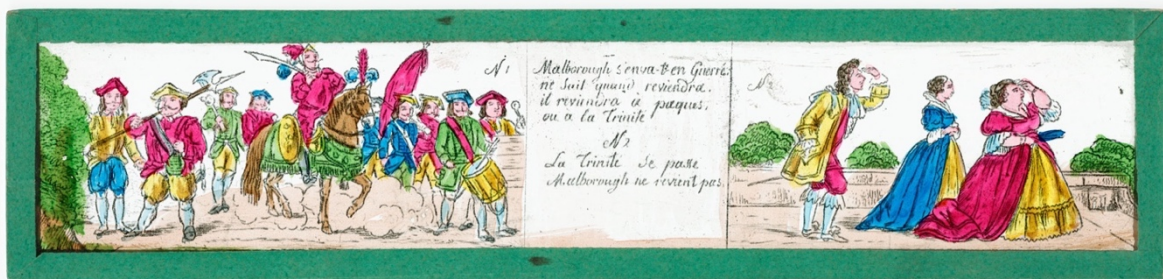 N 1
Malborough s'en va-t-en Guerre
ne Sait quand reviendra.
il reviendra a pacques,
ou a la Trinite
N2
La Trinite se passe
Malborough ne revient pas,
N